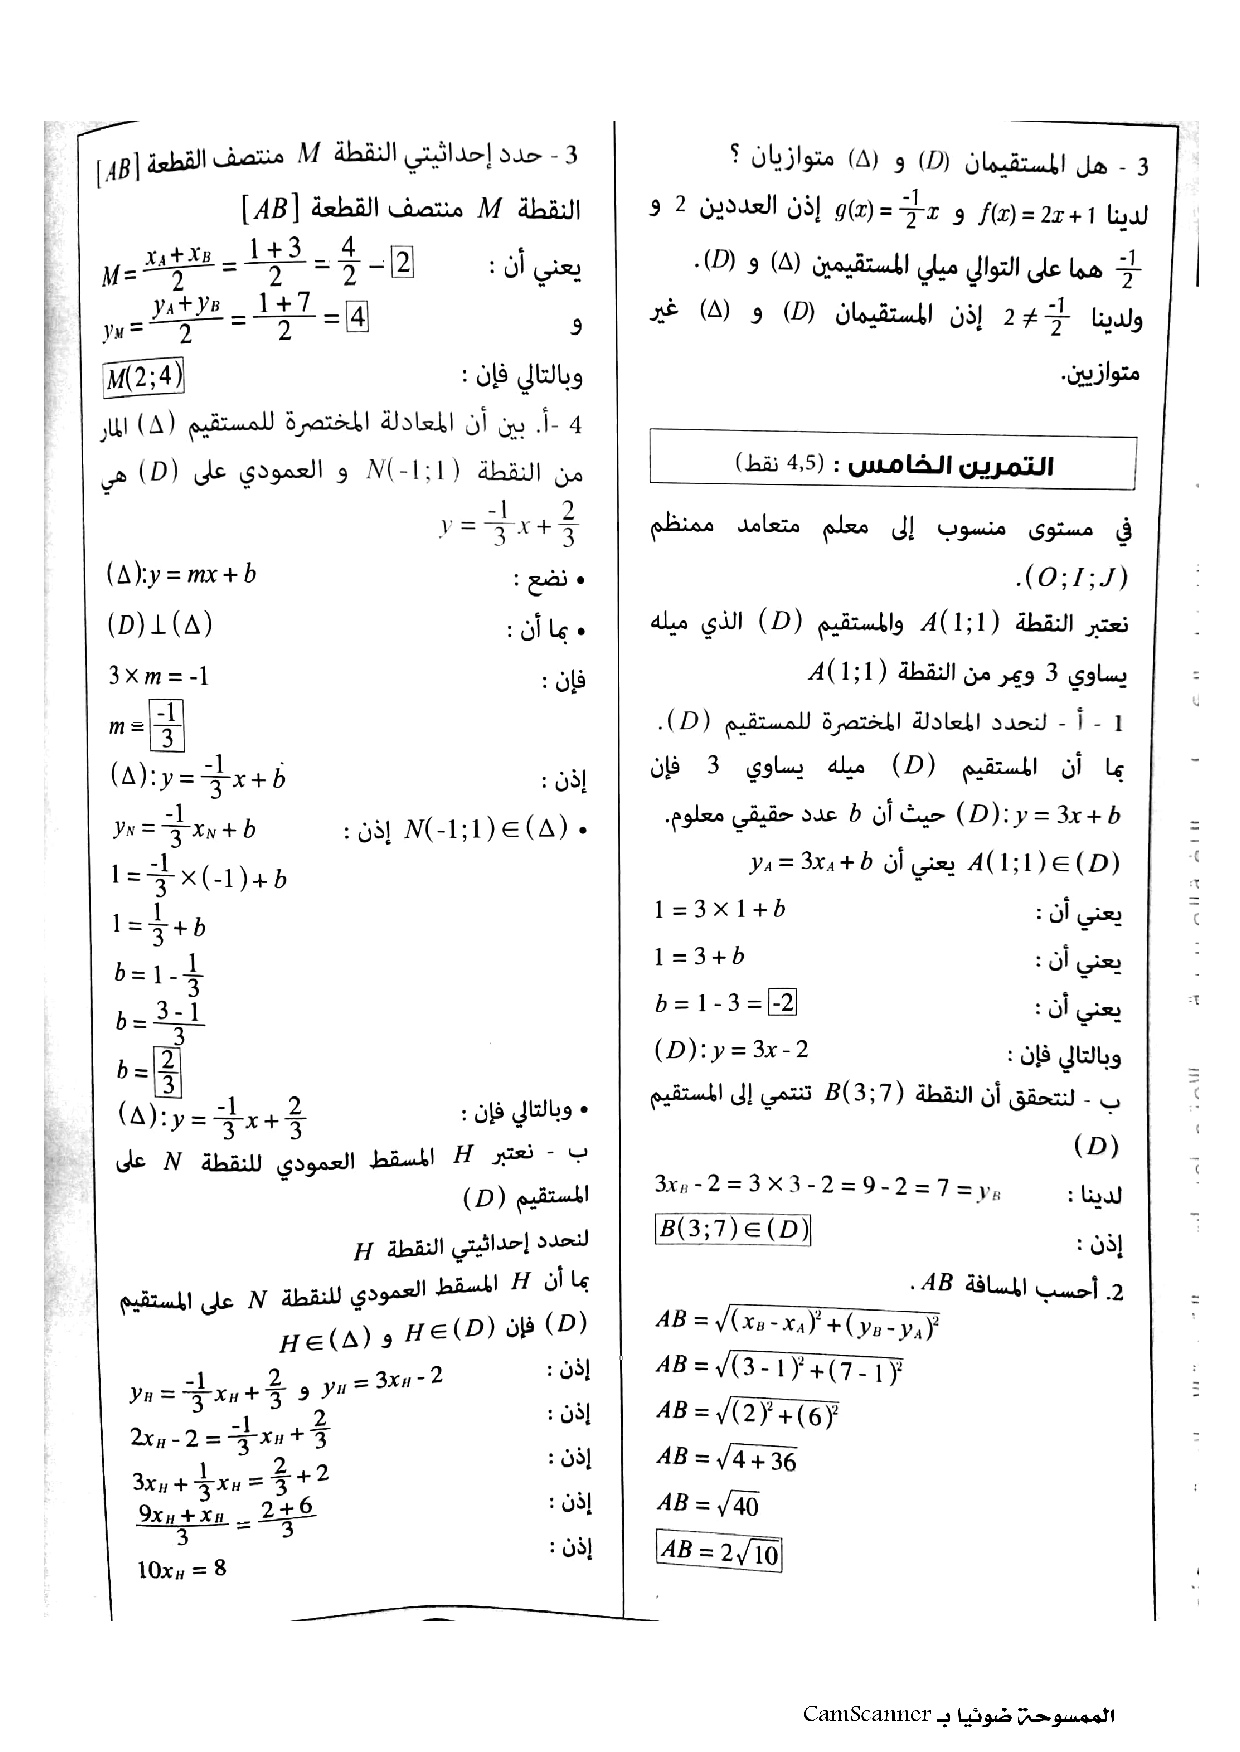 3 - هل المستقيمان (D) و (Δ) متوازيان ؟
لدينا f(x) = 2x + 1 و g(x) = \frac{-1}{2}x إذن العددين 2 و
\frac{-1}{2} هما على التوالي ميلي المستقيمين (Δ) و (D).
ولدينا 2 ≠ \frac{-1}{2} إذن المستقيمان (D) و (Δ) غير
متوازيين.
التمرين الخامس : (4,5 نقط)
في مستوى منسوب إلى معلم متعامد ممنظم
(O ; I ; J).
نعتبر النقطة A(1;1) والمستقيم (D) الذي ميله
يساوي 3 ويمر من النقطة A(1;1)
1 - أ - لنحدد المعادلة المختصرة للمستقيم (D).
بما أن المستقيم (D) ميله يساوي 3 فإن
(D): y = 3x + b حيث أن b عدد حقيقي معلوم.
A(1;1) ∈ (D) يعني أن y_A = 3x_A + b
يعني أن : 1 = 3 × 1 + b
يعني أن : 1 = 3 + b
يعني أن : b = 1 - 3 = -2
وبالتالي فإن : (D): y = 3x - 2
ب - لنتحقق أن النقطة B(3;7) تنتمي إلى المستقيم
(D)
لدينا : 3x_B - 2 = 3 × 3 - 2 = 9 - 2 = 7 = y_B
إذن : B(3;7) ∈ (D)
2. أحسب المسافة AB .
AB = √((x_B - x_A)² + (y_B - y_A)²)
AB = √((3 - 1)² + (7 - 1)²)
AB = √((2)² + (6)²)
AB = √(4 + 36)
AB = √40
AB = 2√10
3 - حدد إحداثيتي النقطة M منتصف القطعة [AB]
النقطة M منتصف القطعة [AB]
يعني أن : M = \frac{x_A + x_B}{2} = \frac{1 + 3}{2} = \frac{4}{2} - 2
و y_M = \frac{y_A + y_B}{2} = \frac{1 + 7}{2} = 4
وبالتالي فإن : M(2;4)
4 -أ. بين أن المعادلة المختصرة للمستقيم (Δ) المار
من النقطة N(-1;1) و العمودي على (D) هي
y = \frac{-1}{3}x + \frac{2}{3}
• نضع : (Δ): y = mx + b
• بما أن : (D) ⊥ (Δ)
فإن : 3 × m = -1
m = \frac{-1}{3}
إذن : (Δ): y = \frac{-1}{3}x + b
• N(-1;1) ∈ (Δ) إذن : y_N = \frac{-1}{3}x_N + b
1 = \frac{-1}{3} × (-1) + b
1 = \frac{1}{3} + b
b = 1 - \frac{1}{3}
b = \frac{3 - 1}{3}
b = \frac{2}{3}
• وبالتالي فإن : (Δ): y = \frac{-1}{3}x + \frac{2}{3}
ب - نعتبر H المسقط العمودي للنقطة N على
المستقيم (D)
لنحدد إحداثيتي النقطة H
بما أن H المسقط العمودي للنقطة N على المستقيم
(D) فإن H ∈ (D) و H ∈ (Δ)
إذن : y_H = 3x_H - 2 و y_H = \frac{-1}{3}x_H + \frac{2}{3}
إذن : 2x_H - 2 = \frac{-1}{3}x_H + \frac{2}{3}
إذن : 3x_H + \frac{1}{3}x_H = \frac{2}{3} + 2
إذن : \frac{9x_H + x_H}{3} = \frac{2 + 6}{3}
إذن : 10x_H = 8
الممسوحة ضوئيا بـ CamScanner